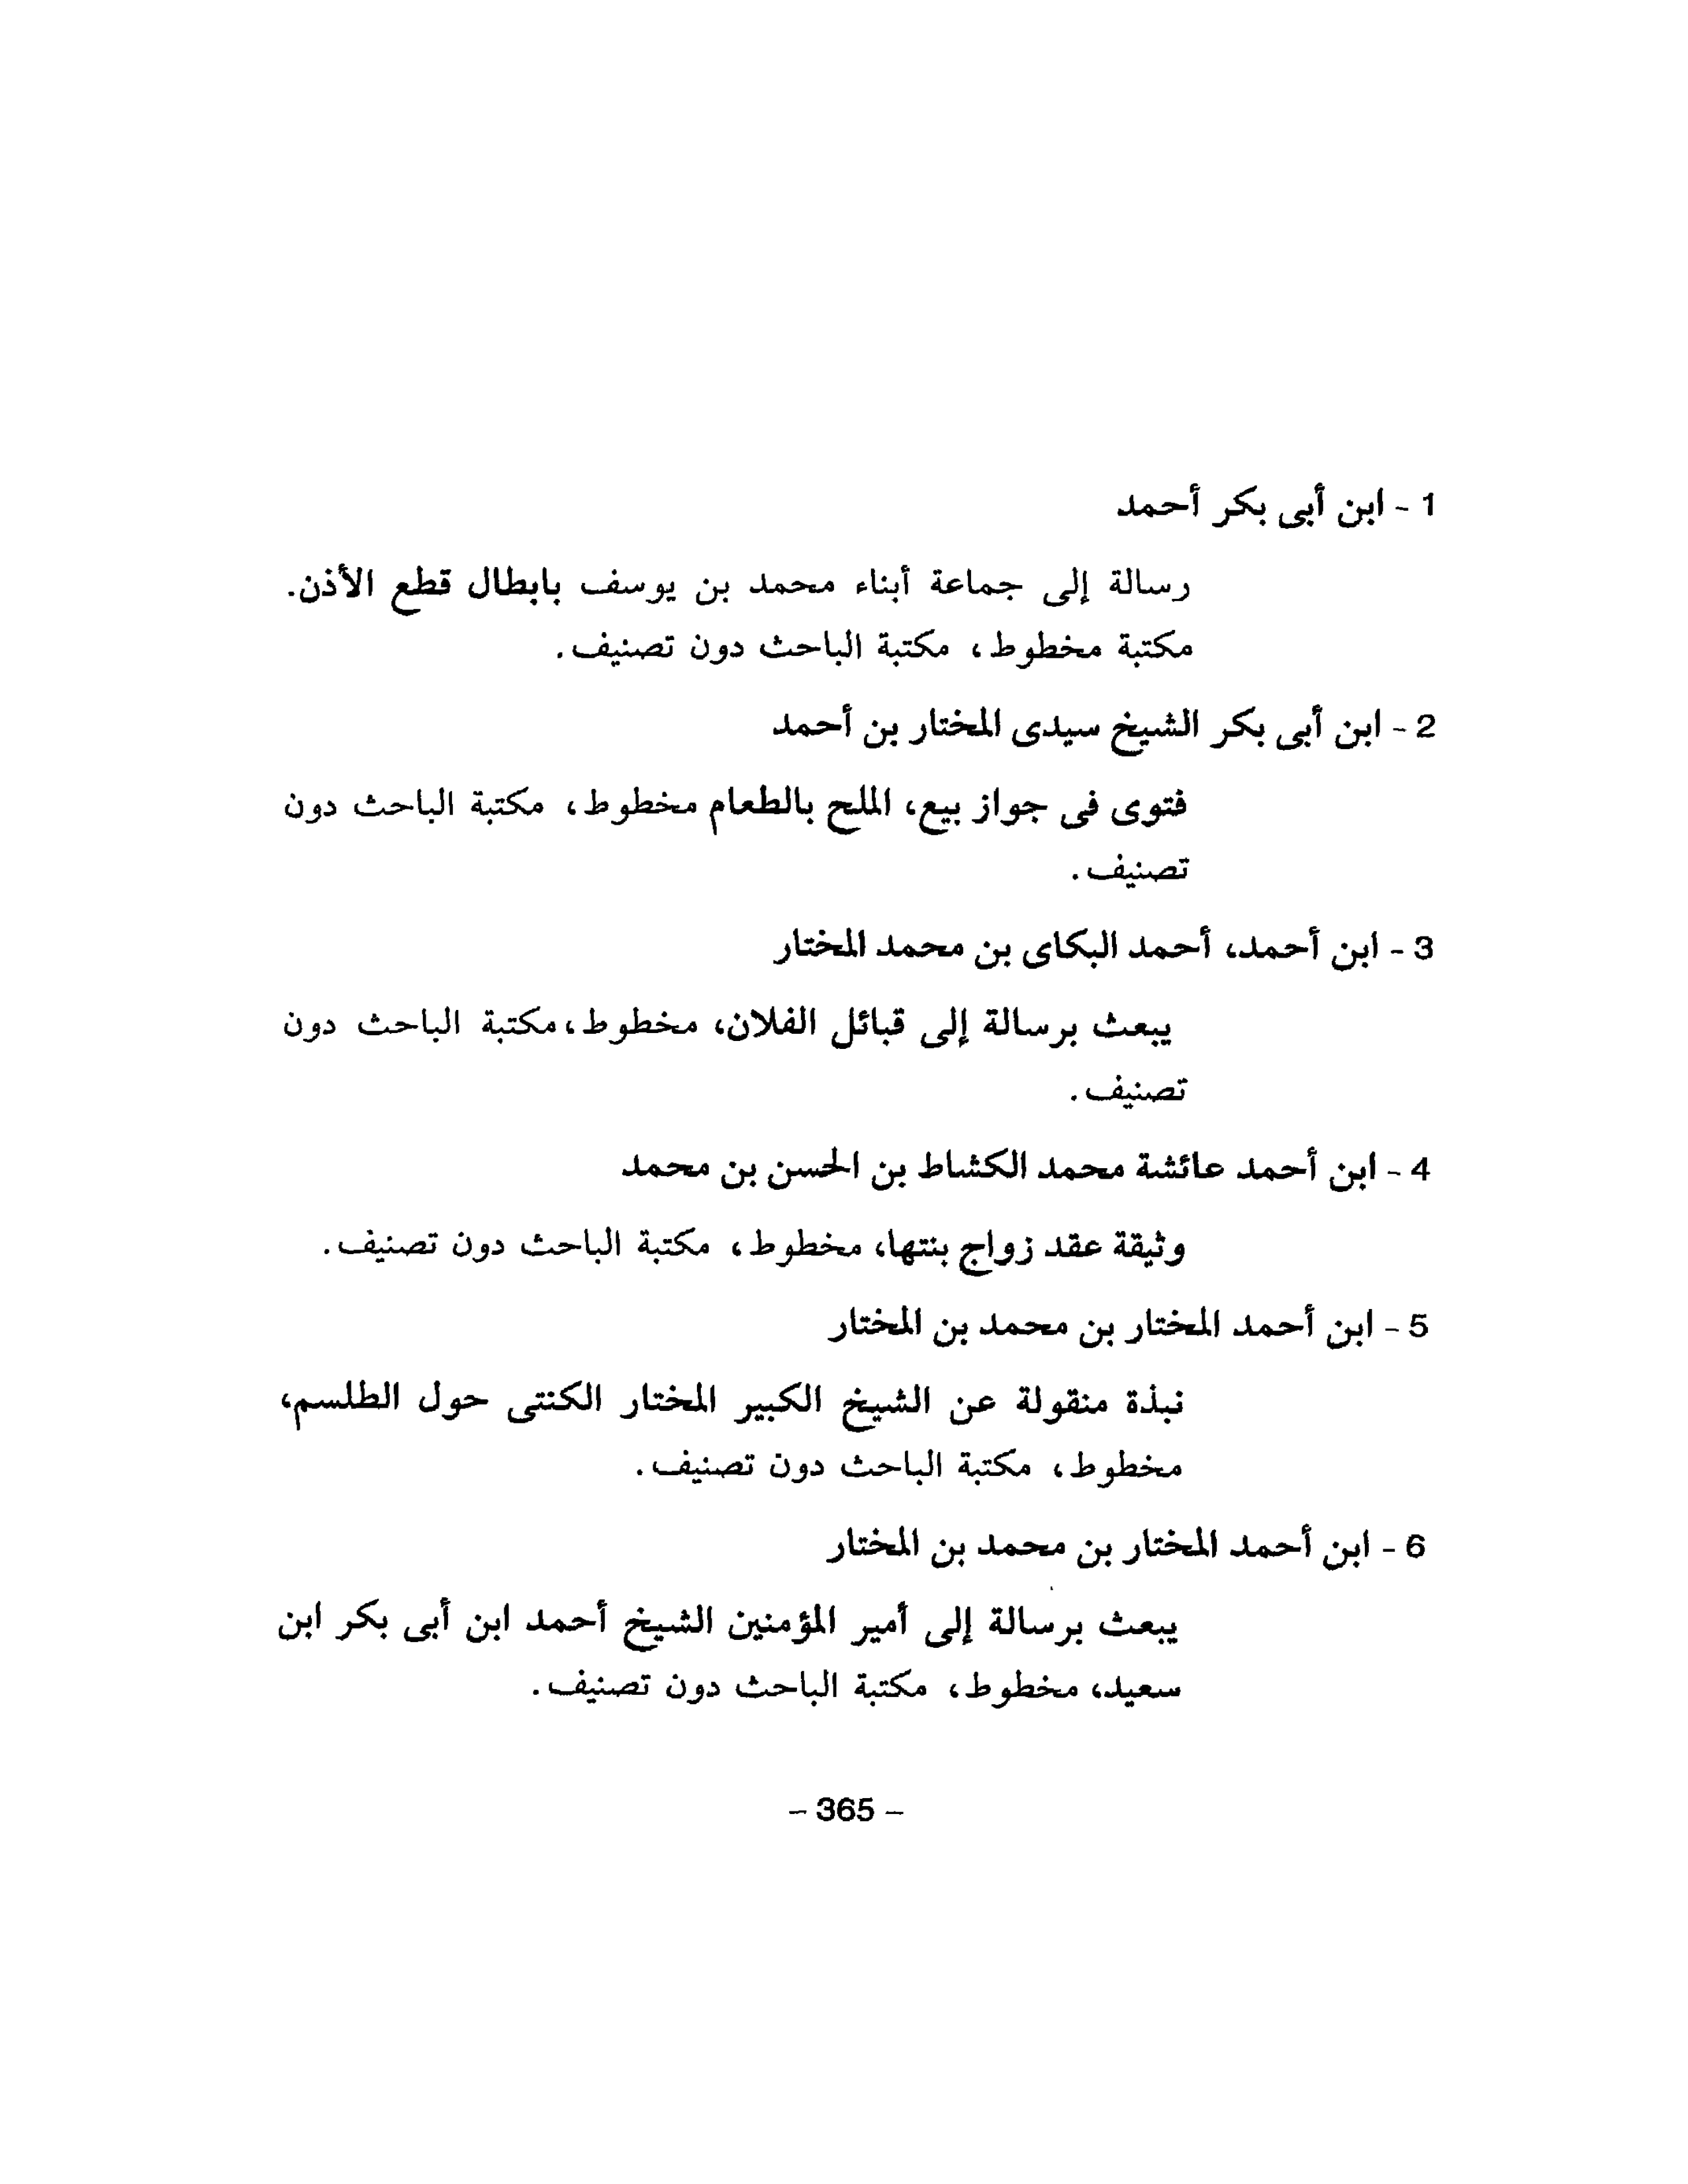 1 - ابن أبى بكر أحمد
رسالة إلى جماعة أبناء محمد بن يوسف بابطال قطع الأذن.
مكتبة مخطوط، مكتبة الباحث دون تصنيف.
2 - ابن أبى بكر الشيخ سيدى المختار بن أحمد
فتوى فى جواز بيع، الملح بالطعام مخطوط، مكتبة الباحث دون
تصنيف.
3 - ابن أحمد، أحمد البكاى بن محمد المختار
يبعث برسالة إلى قبائل الفلان، مخطوط، مكتبة الباحث دون
تصنيف.
4 - ابن أحمد عائشة محمد الكشاط بن الحسن بن محمد
وثيقة عقد زواج بنتها، مخطوط، مكتبة الباحث دون تصنيف.
5 - ابن أحمد المختار بن محمد بن المختار
نبذة منقولة عن الشيخ الكبير المختار الكنتى حول الطلسم،
مخطوط، مكتبة الباحث دون تصنيف.
6 - ابن أحمد المختار بن محمد بن المختار
يبعث برسالة إلى أمير المؤمنين الشيخ أحمد ابن أبى بكر ابن
سعيد، مخطوط، مكتبة الباحث دون تصنيف.
- 365 -